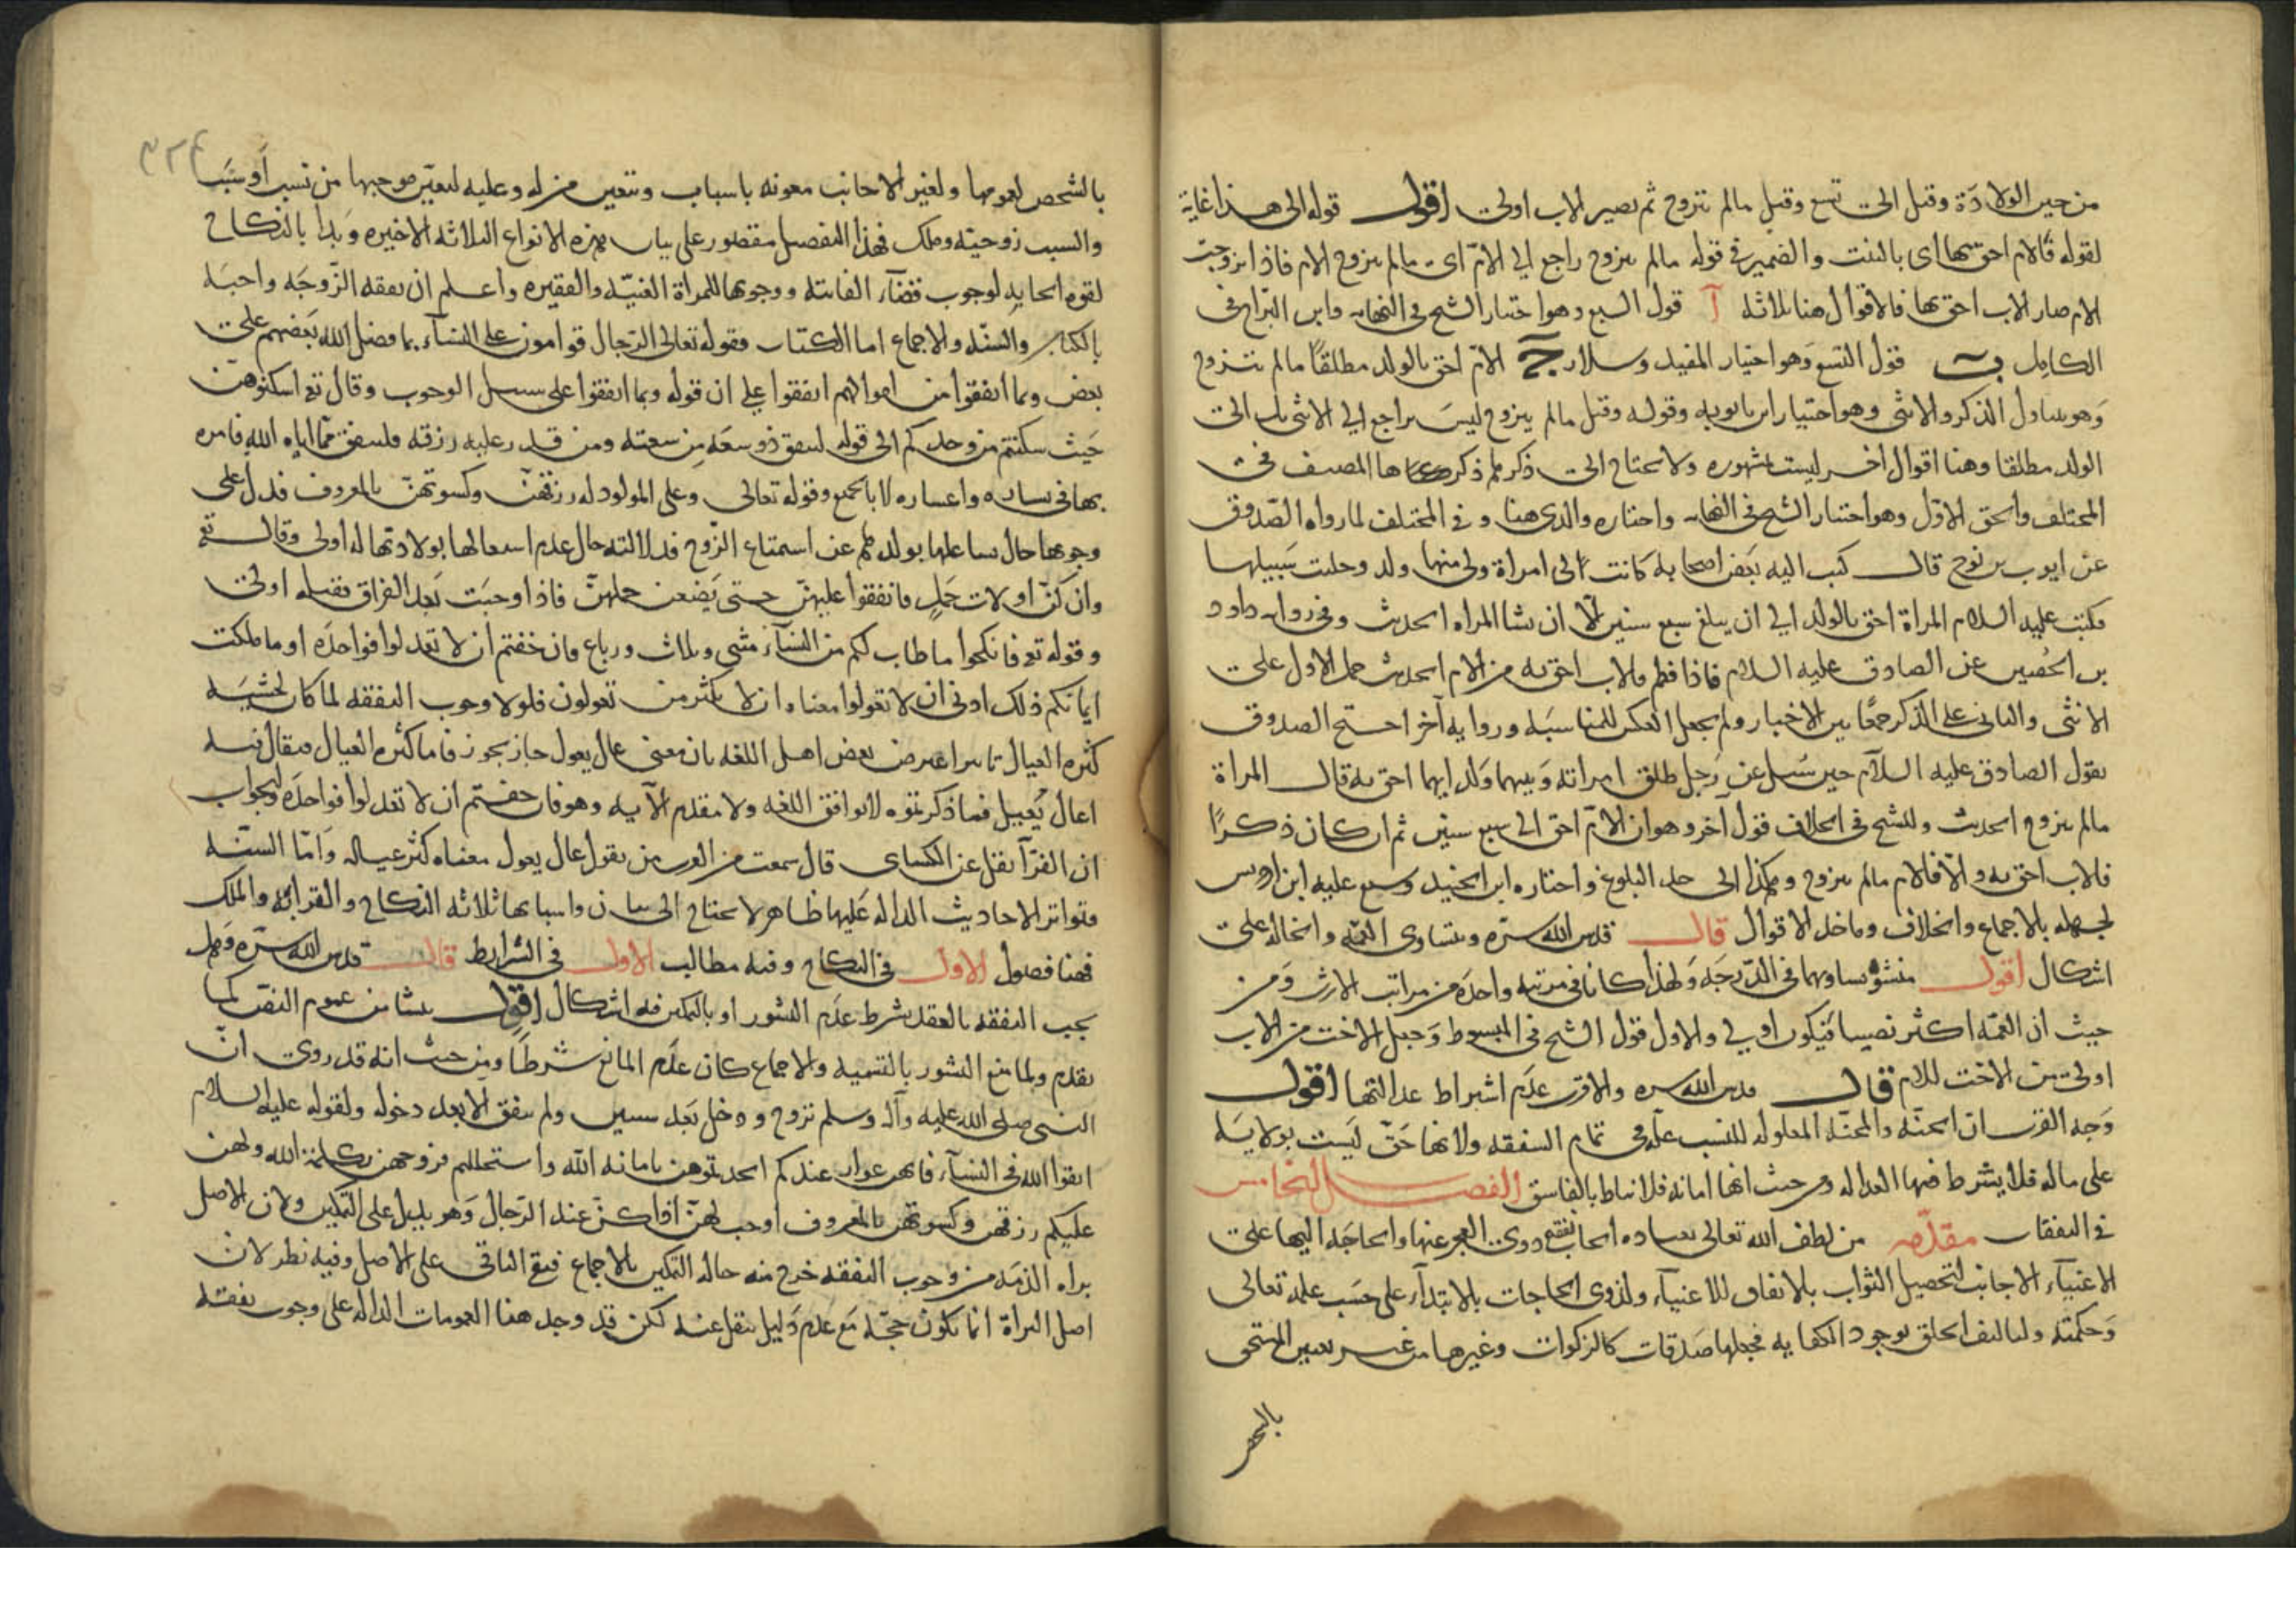 من حين الولادة وقيل الى تسع وقيل مالم تتزوج ثم يصير الاب اولى اقول قوله الى هذا غاية
لقوله فالام احق بها اى بالبنت والضمير في قوله مالم تتزوج راجع الى الام اى مالم تتزوج الام فاذا تزوجت
الام صار الاب احق بها فالاقوال هنا ثلاثة آ قول السبع وهو اختيار الشيخ في النهاية وابن البراج في
الكامل ب قول التسع وهو اختيار المفيد وسلار ج الام احق بالولد مطلقا مالم تتزوج
وهو يتناول الذكر والانثى وهو اختيار ابن بابويه وقوله وقيل مالم يتزوج ليس براجع الى الانثى بل الى
الولد مطلقا وهنا اقوال اخر ليست مشهورة ولا يحتاج الى ذكرها ذكرها المصنف في
المختلف والحق الاول وهو اختيار الشيخ في النهاية واختاره والدى هنا وفي المختلف لما رواه الصدوق
عن ايوب بن نوح قال كتب اليه بعض اصحابه كانت لى امراة ولى منها ولد وخليت سبيلها
فكتب عليه السلام المراة احق بالولد الى ان يبلغ سبع سنين الا ان تشا المراه الحديث وفي رواية داود
بن الحصين عن الصادق عليه السلام فاذا فطم فالاب احق به من الام الحديث حمل الاول على
الانثى والثانى على الذكر جمعا بين الاخبار ولم يجعل العكس للمناسبة ورواية آخر احتج الصدوق
بقول الصادق عليه السلام حين سئل عن رجل طلق امراته وبينهما ولد ايهما احق به قال المراة
مالم تتزوج الحديث وللشيخ في الخلاف قول اخر وهو ان الام احق الى سبع سنين ثم ان كان ذكرا
فالاب احق به والا فالام مالم تتزوج وهكذا الى حد البلوغ واختاره ابن الجنيد وشنع عليه ابن ادريس
لجهله بالاجماع والخلاف وماخذ الاقوال قال قدس الله سره وتتساوى العمة والخالة على
اشكال اقول منشؤه تساويهما في الدرجة ولهذا كانا في مرتبة واحدة من مراتب الارث ومن
حيث ان العمة اكثر نصيبا فيكون اولى والاول قول الشيخ في المبسوط وجعل الاخت من الاب
اولى من الاخت للام قال قدس الله سره والاقرب عدم اشتراط عدالتها اقول
وجه القرب ان الحنة والمحنة المعلولة للنسب علة في تمام الشفقة ولانها حق ليست بولاية
على مال فلا يشترط فيها العدالة ومن حيث انها امانة فلا تناط بالفاسق الفصل الخامس
في النفقات مقدمة من لطف الله تعالى بعباده ايجاب نفع ذوى العجز عنها والحاجة اليها على
الاغنياء الاجانب لتحصيل الثواب بالانفاق للاغنياء ولذوى الحاجات بالابتداء على حسب علمه تعالى
وحكمته وليالف الخلق بوجود الكفاية فجعلها صدقات كالزكوات وغيرها من غير تعيين المستحق
بالشخص
بالشخص لعمومها ولغير الاجانب معونة باسباب وتتعين من له وعليه لتعين موجبها من نسب او سبب
والسبب زوجية وملك فهذا الفصل مقصور على بيان هذه الانواع الثلاثة الاخيرة وبدا بالنكاح
لقوة ايجابه لوجوب قضاء الفائتة ووجوبها للمراة الغنية والفقيرة واعلم ان نفقة الزوجة واجبة
بالكتاب والسنة والاجماع اما الكتاب فقوله تعالى الرجال قوامون على النساء بما فضل الله بعضهم على
بعض وبما انفقوا من اموالهم اتفقوا على ان قوله وبما انفقوا على سبيل الوجوب وقال تع اسكنوهن
حيث سكنتم من وجدكم الى قوله لينفق ذو سعة من سعته ومن قدر عليه رزقه فلينفق مما اتاه الله فامره
بها في يساره واعساره لا بالجميع وقوله تعالى وعلى المولود له رزقهن وكسوتهن بالمعروف فدل على
وجوبها حال تشاغلها بولدهم عن استمتاع الزوج فدلالته حال عدم اشتغالها بولادتها له اولى وقال تع
وان كن اولات حمل فانفقوا عليهن حتى يضعن حملهن فاذا وجبت بعد الفراق فقبله اولى
وقوله تع فانكحوا ما طاب لكم من النساء مثنى وثلاث ورباع فان خفتم ان لا تعدلوا فواحدة او ما ملكت
ايمانكم ذلك ادنى ان لا تعولوا معناه ان لا يكثر من تعولون فلولا وجوب النفقة لما كان لخشية
كثرة العيال تاثيرا اعترض بعض اهل اللغة بان معنى عال يعول جاز يجوز فاما كثرة العيال فيقال فيه
اعال يعيل فما ذكرتموه لا يوافق اللغة ولا مقدم الآية وهو فان خفتم ان لا تعدلوا فواحدة والجواب
ان الفرآ نقل عن الكسائى قال سمعت من العرب من يقول عال يعول معناه كثر عياله واما السنة
فتواتر الاحاديث الدالة عليها ظاهر لا يحتاج الى بيان واسبابها ثلاثة النكاح والقرابة والملك
فهنا فصول الاول في النكاح وفيه مطالب الاول في الشرايط قال قدس الله سره وهل
يجب النفقة بالعقد بشرط عدم النشوز او بالتمكين فيه اشكال اقول ينشا من عموم النص كما
تقدم ولما منع النشوز بالتسمية والاجماع كان عدم المانع شرطا ومن حيث انه قد روى ان
النبى صلى الله عليه وآله وسلم تزوج ودخل بعد سنين ولم ينفق الا بعد دخوله ولقوله عليه السلام
اتقوا الله في النساء فانهن عوار عندكم اخذتموهن بامانة الله واستحللتم فروجهن بكلمة الله ولهن
عليكم رزقهن وكسوتهن بالمعروف اوجب لهن اذا كن عند الرجال وهو يدل على التمكين ولان الاصل
براه الذمة من وجوب النفقة خرج منه حالة التمكين بالاجماع فبقى الباقى على الاصل وفيه نظر لان
اصل البراة انما يكون حجة مع عدم دليل ينقل عنه لكن قد وجد هنا العمومات الدالة على وجوب نفقة